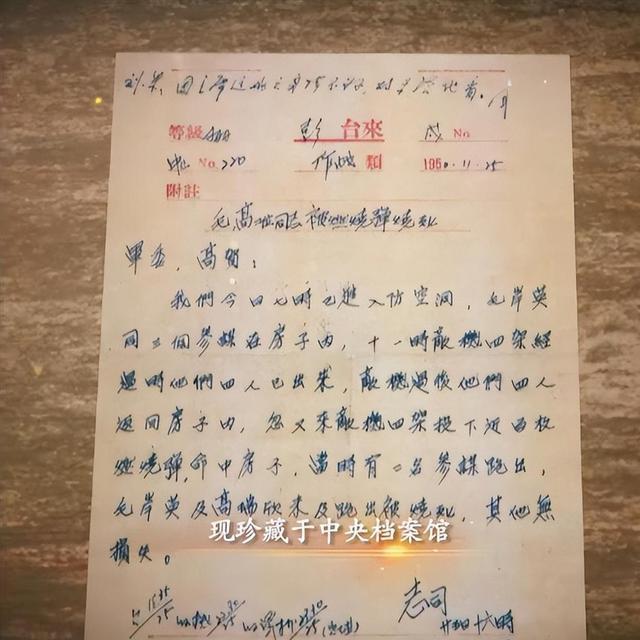 等級 台來 No
No. 220 作战 類 1950.11.25
附註
毛高 同志被燃燒彈燒死
軍委，高賀：
我們今日七時已進入防空洞，毛岸英
同三個參謀在房子內，十一時敵機四架經
過時他們四人已出來，敵機過後他們四人
返回房子內，忽又來敵機四架投下近百枚
燃燒彈，命中房子，當時有二名參謀跑出，
毛岸英及高瑞欣未及跑出被燒死，其他無
損失。
现珍藏于中央档案馆
志司
廿五日十六時